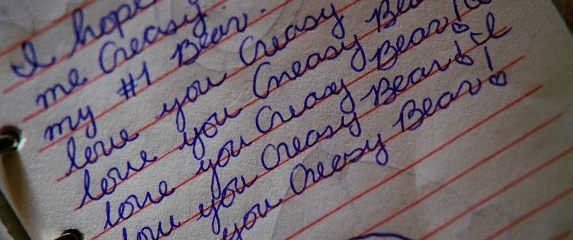 I hope
me Creasy
my #1 Bear.
love you Creasy
love you Creasy Bear! I
love you Creasy Bear! I
love you Creasy Bear!
you Creasy Bear!